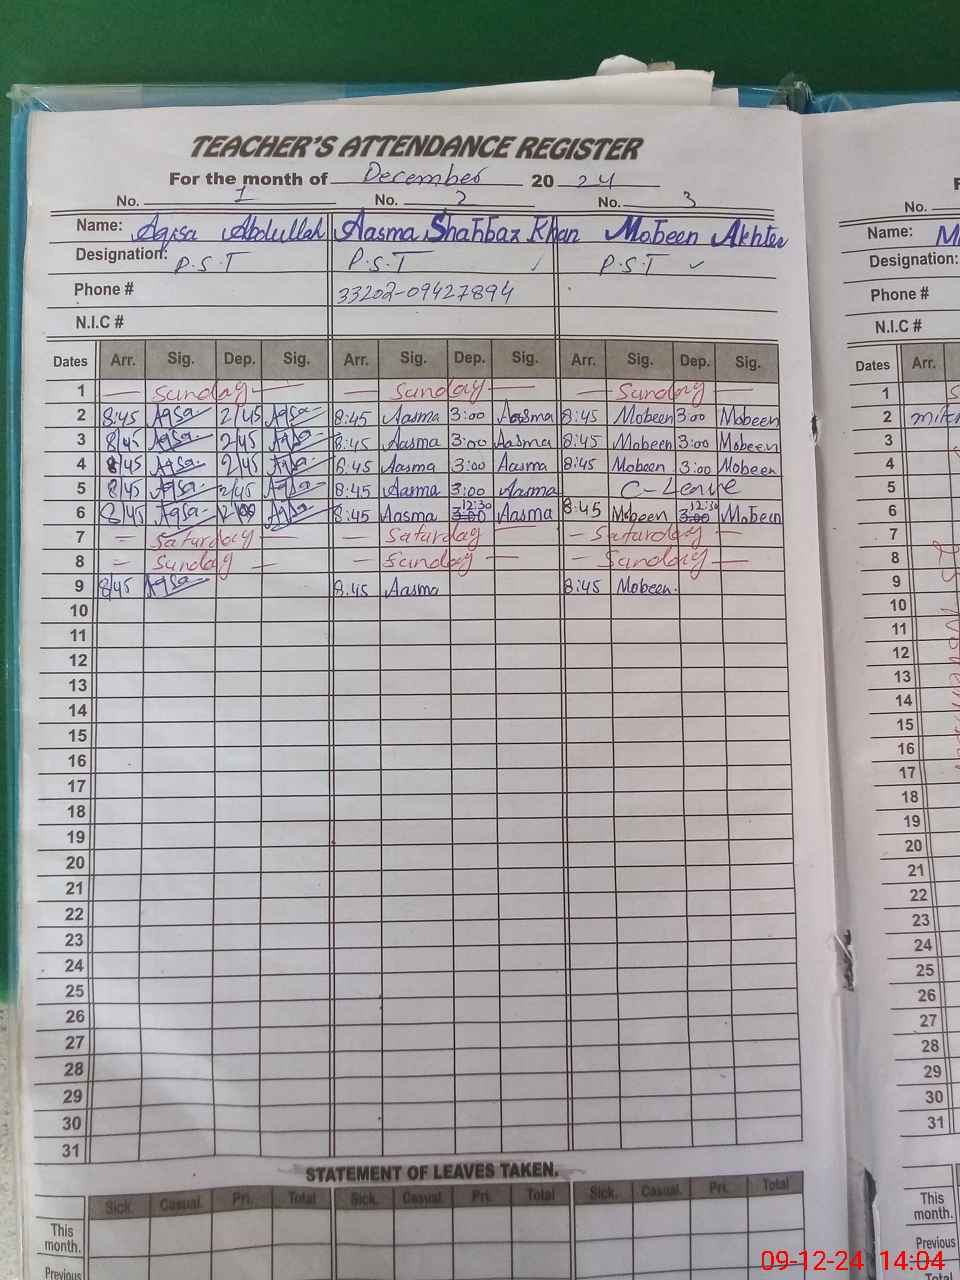 TEACHER'S ATTENDANCE REGISTER
For the month of December 2024
No. 1 No. 2 No. 3
Name: Aqsa Abdullah Aasma Shahbaz Khan Mobeen Akhter
Designation: P.S.T P.S.T ✓ P.S.T ✓
Phone # 33202-09427894
N.I.C #
Dates Arr. Sig. Dep. Sig. Arr. Sig. Dep. Sig. Arr. Sig. Dep. Sig.
1 — Sunday — — Sunday — — Sunday —
2 8:45 Aqsa 2/45 Aqsa 8:45 Aasma 3:00 Aasma 8:45 Mobeen 3:00 Mobeen
3 8/45 Aqsa 2/45 Aqsa 8:45 Aasma 3:00 Aasma 8:45 Mobeen 3:00 Mobeen
4 8/45 Aqsa 2/45 Aqsa 8:45 Aasma 3:00 Aasma 8:45 Mobeen 3:00 Mobeen
5 8/45 Aqsa 2/45 Aqsa 8:45 Aasma 3:00 Aasma C-Leave
6 8/45 Aqsa Aqsa 8:45 Aasma 12:30 3:00 Aasma 8:45 Mobeen 12:30 3:00 Mobeen
7 — Saturday — — Saturday — — Saturday —
8 — Sunday — — Sunday — — Sunday —
9 8/45 Aqsa 8:45 Aasma 8:45 Mobeen.
10
11
12
13
14
15
16
17
18
19
20
21
22
23
24
25
26
27
28
29
30
31
STATEMENT OF LEAVES TAKEN.
Sick. Casual. Pri. Total Sick. Casual. Pri. Total Sick. Casual. Pri. Total
This month.
Previous
No.
Name: M
Designation:
Phone #
N.I.C #
Dates Arr.
1 S
2
3
4
5
6
7
8
9
10
11
12
13
14
15
16
17
18
19
20
21
22
23
24
25
26
27
28
29
30
31
This month.
Previous
Total
09-12-24 14:04